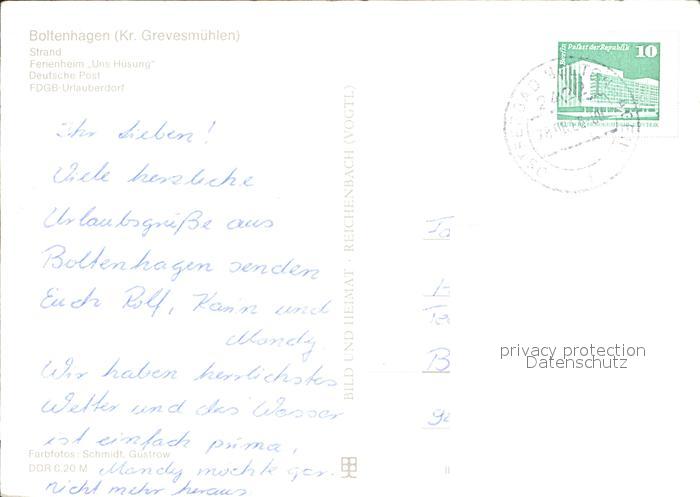 Boltenhagen (Kr. Grevesmühlen)
Strand
Ferienheim „Uns Hüsung"
Deutsche Post
FDGB-Urlauberdorf
Berlin Palast der Republik 10
Ihr Lieben!
Viele herzliche
Urlaubsgrüße aus
Boltenhagen senden
Euch Rolf, Karin und
Mandy.
Wir haben herrlichstes
Wetter und das Wasser
ist einfach prima,
Mandy möchte gar
nicht mehr heraus
BILD UND HEIMAT · REICHENBACH (VOGTL)
privacy protection
Datenschutz
Farbfotos: Schmidt, Güstrow
DDR 0.20 M